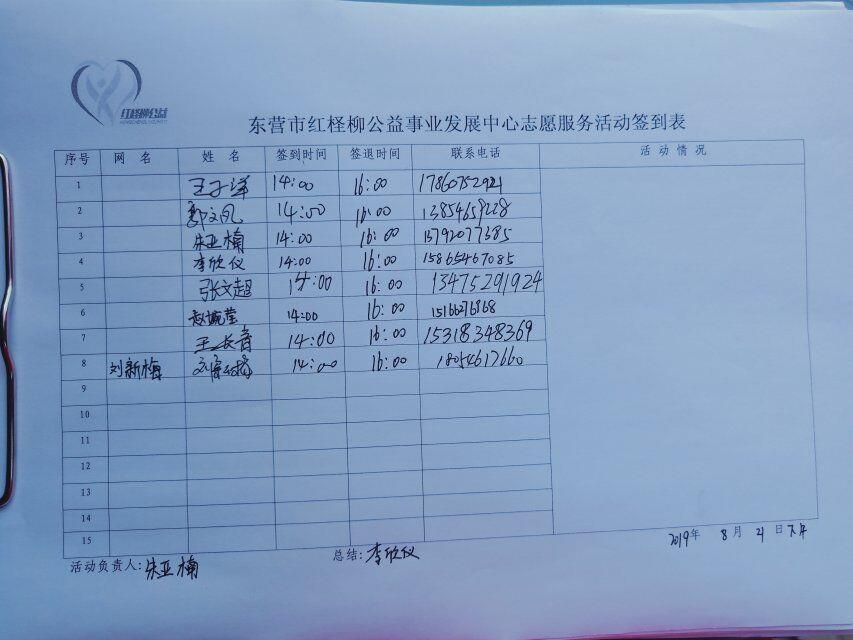 红柽柳公益
东营市红柽柳公益事业发展中心志愿服务活动签到表
序号 网 名 姓 名 签到时间 签退时间 联系电话 活动情况
1 王子洋 14:00 16:00
2 郭文凤 14:00 16:00
3 朱亚楠 14:00 16:00
4 李欣仪 14:00 16:00 15865467085
5 张文超 14:00 16:00 13475291924
6 14:00 16:00
7 14:00 16:00 15318348369
8 刘新梅 14:00 16:00 18054617660
9
10
11
12
13
14
15
2019年 8月 21日下午
活动负责人:朱亚楠 总结:李欣仪